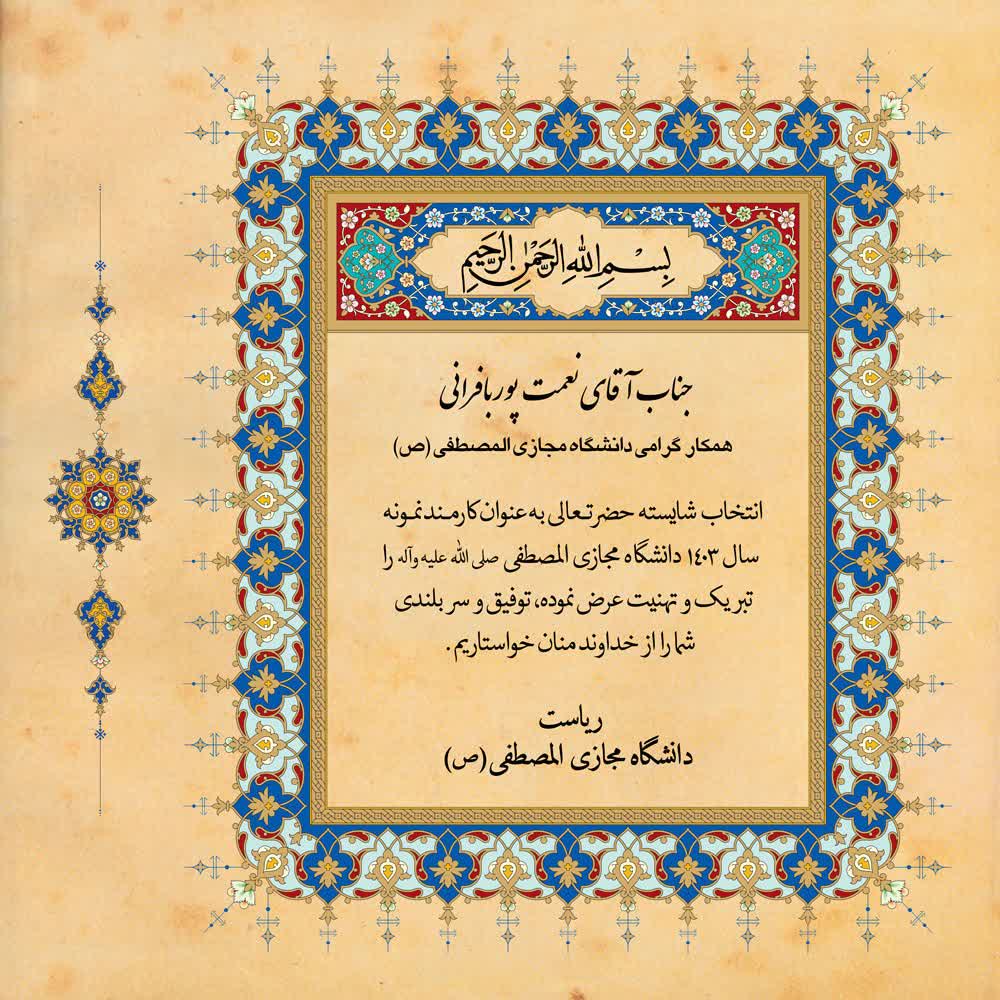 بِسْمِ اللهِ الرَّحْمٰنِ الرَّحِیمِ
جناب آقای نعمت پوربافرانی
همکار گرامی دانشگاه مجازی المصطفی (ص)
انتخاب شایسته حضرتعالی به عنوان کارمند نمونه
سال ۱۴۰۳ دانشگاه مجازی المصطفی صلی الله علیه وآله را
تبریک و تهنیت عرض نموده، توفیق و سر بلندی
شما را از خداوند منان خواستاریم.
ریاست
دانشگاه مجازی المصطفی (ص)